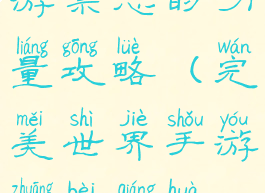 liáng gōng lüè wán
量攻略(完
měi shì jiè shǒu yóu
美世界手游
zhuāng bèi qiáng huà